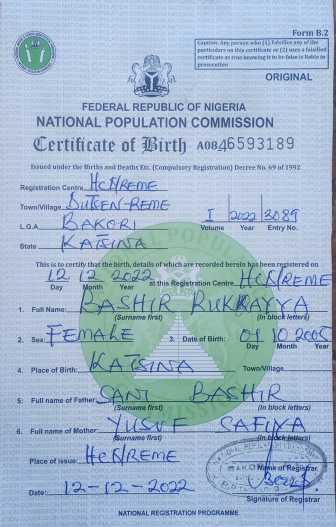 Form B.2
Caution: Any person who (1) falsifies any of the
particulars on this certificate or (2) uses a falsified
certificate as true knowing it to be false is liable to
prosecution
ORIGINAL
FEDERAL REPUBLIC OF NIGERIA
NATIONAL POPULATION COMMISSION
Certificate of Birth A0846593189
Issued under the Births and Deaths Etc. (Compulsory Registration) Decree No. 69 of 1992
Registration Centre HcN/REME
Town/Village DUTSEN-REME
L.G.A BAKORI I 2022 3089
Volume Year Entry No.
State KATSINA
This is to certify that the birth, details of which are recorded herein has been registered on
12 12 2022 at this Registration Centre HcN/REME
Day Month Year
1. Full Name: BASHIR RUKKAYYA
(Surname first) (in block letters)
2. Sex FEMALE 3. Date of Birth: 01 10 2005
Day Month Year
4. Place of Birth: KATSINA Town/Village
5. Full name of Father SANI BASHIR
(Surname first) (in block letters)
6. Full name of Mother YUSUF SAFIYA
(Surname first) (in block letters)
Place of issue: HcN/REME
Name of Registrar
Date: 12-12-2022
Signature of Registrar
NATIONAL REGISTRATION PROGRAMME